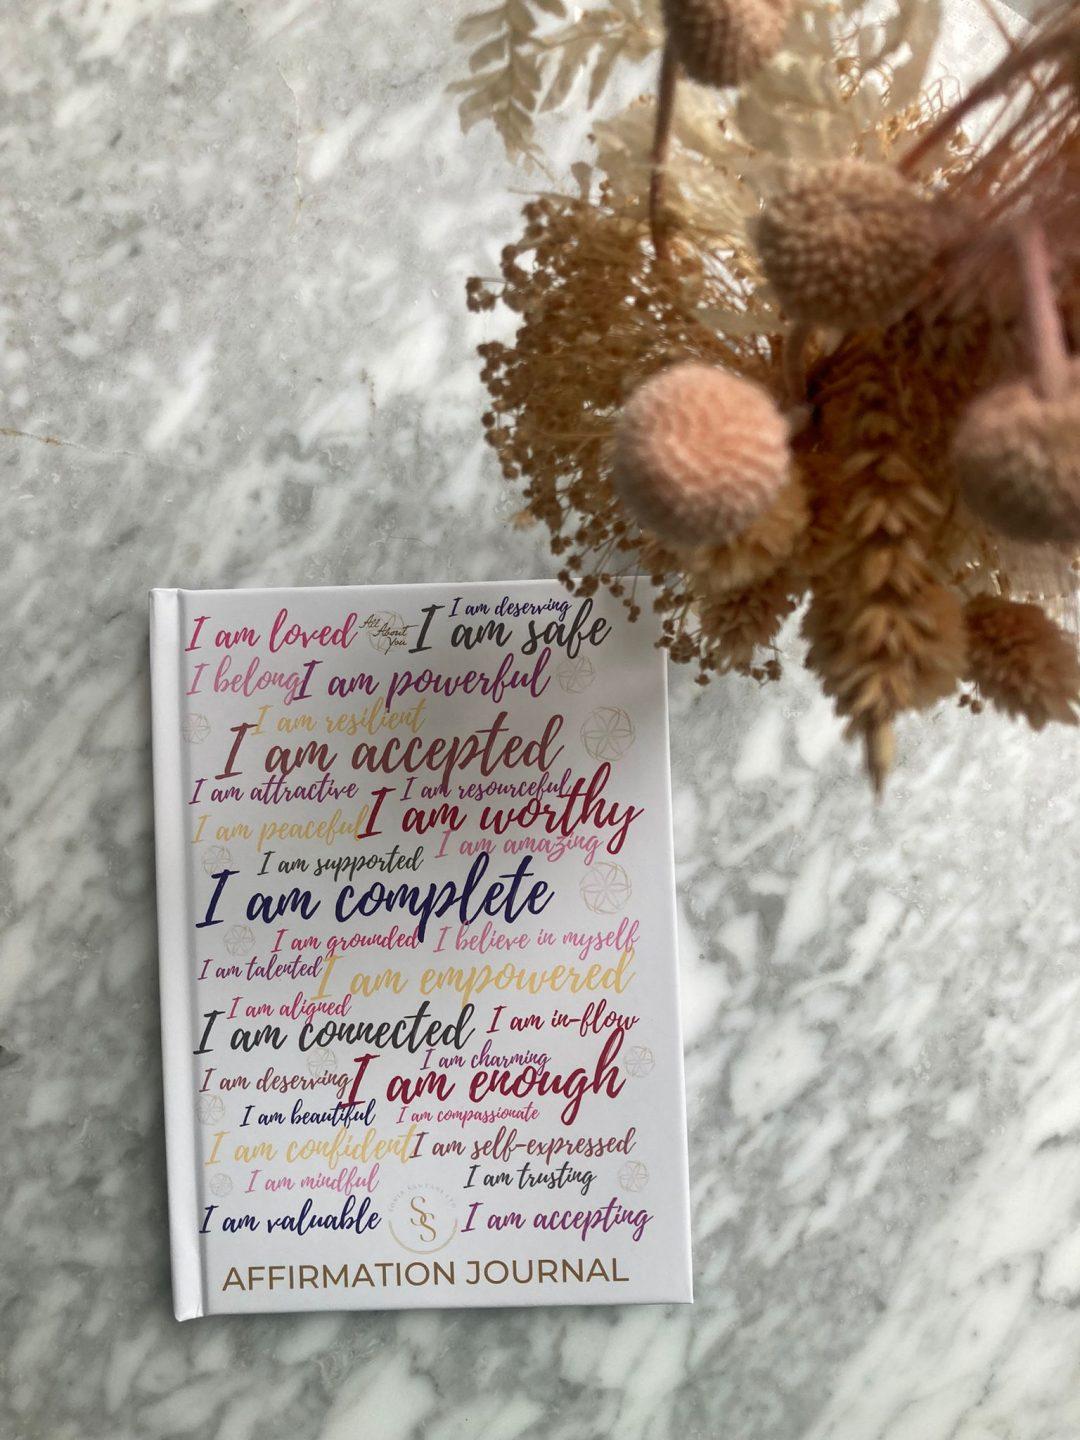 I am deserving
I am loved
All About You
I am safe
I belong
I am powerful
I am resilient
I am accepted
I am attractive
I am resourceful
I am peaceful
I am worthy
I am amazing
I am supported
I am complete
I am grounded
I believe in myself
I am talented
I am empowered
I am aligned
I am connected
I am in-flow
I am charming
I am deserving
I am enough
I am beautiful
I am compassionate
I am confident
I am self-expressed
I am mindful
I am trusting
I am valuable
SS
I am accepting
AFFIRMATION JOURNAL